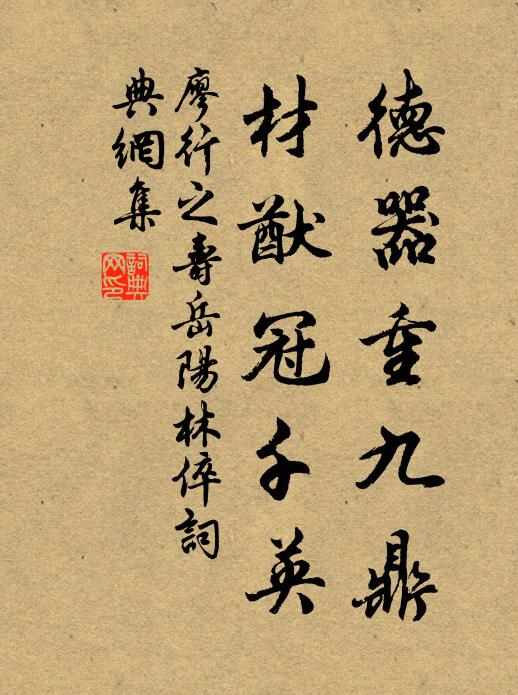 德器重九鼎
材猷冠千英
廖行之壽岳陽林倅詞
典網集
詞典
网印